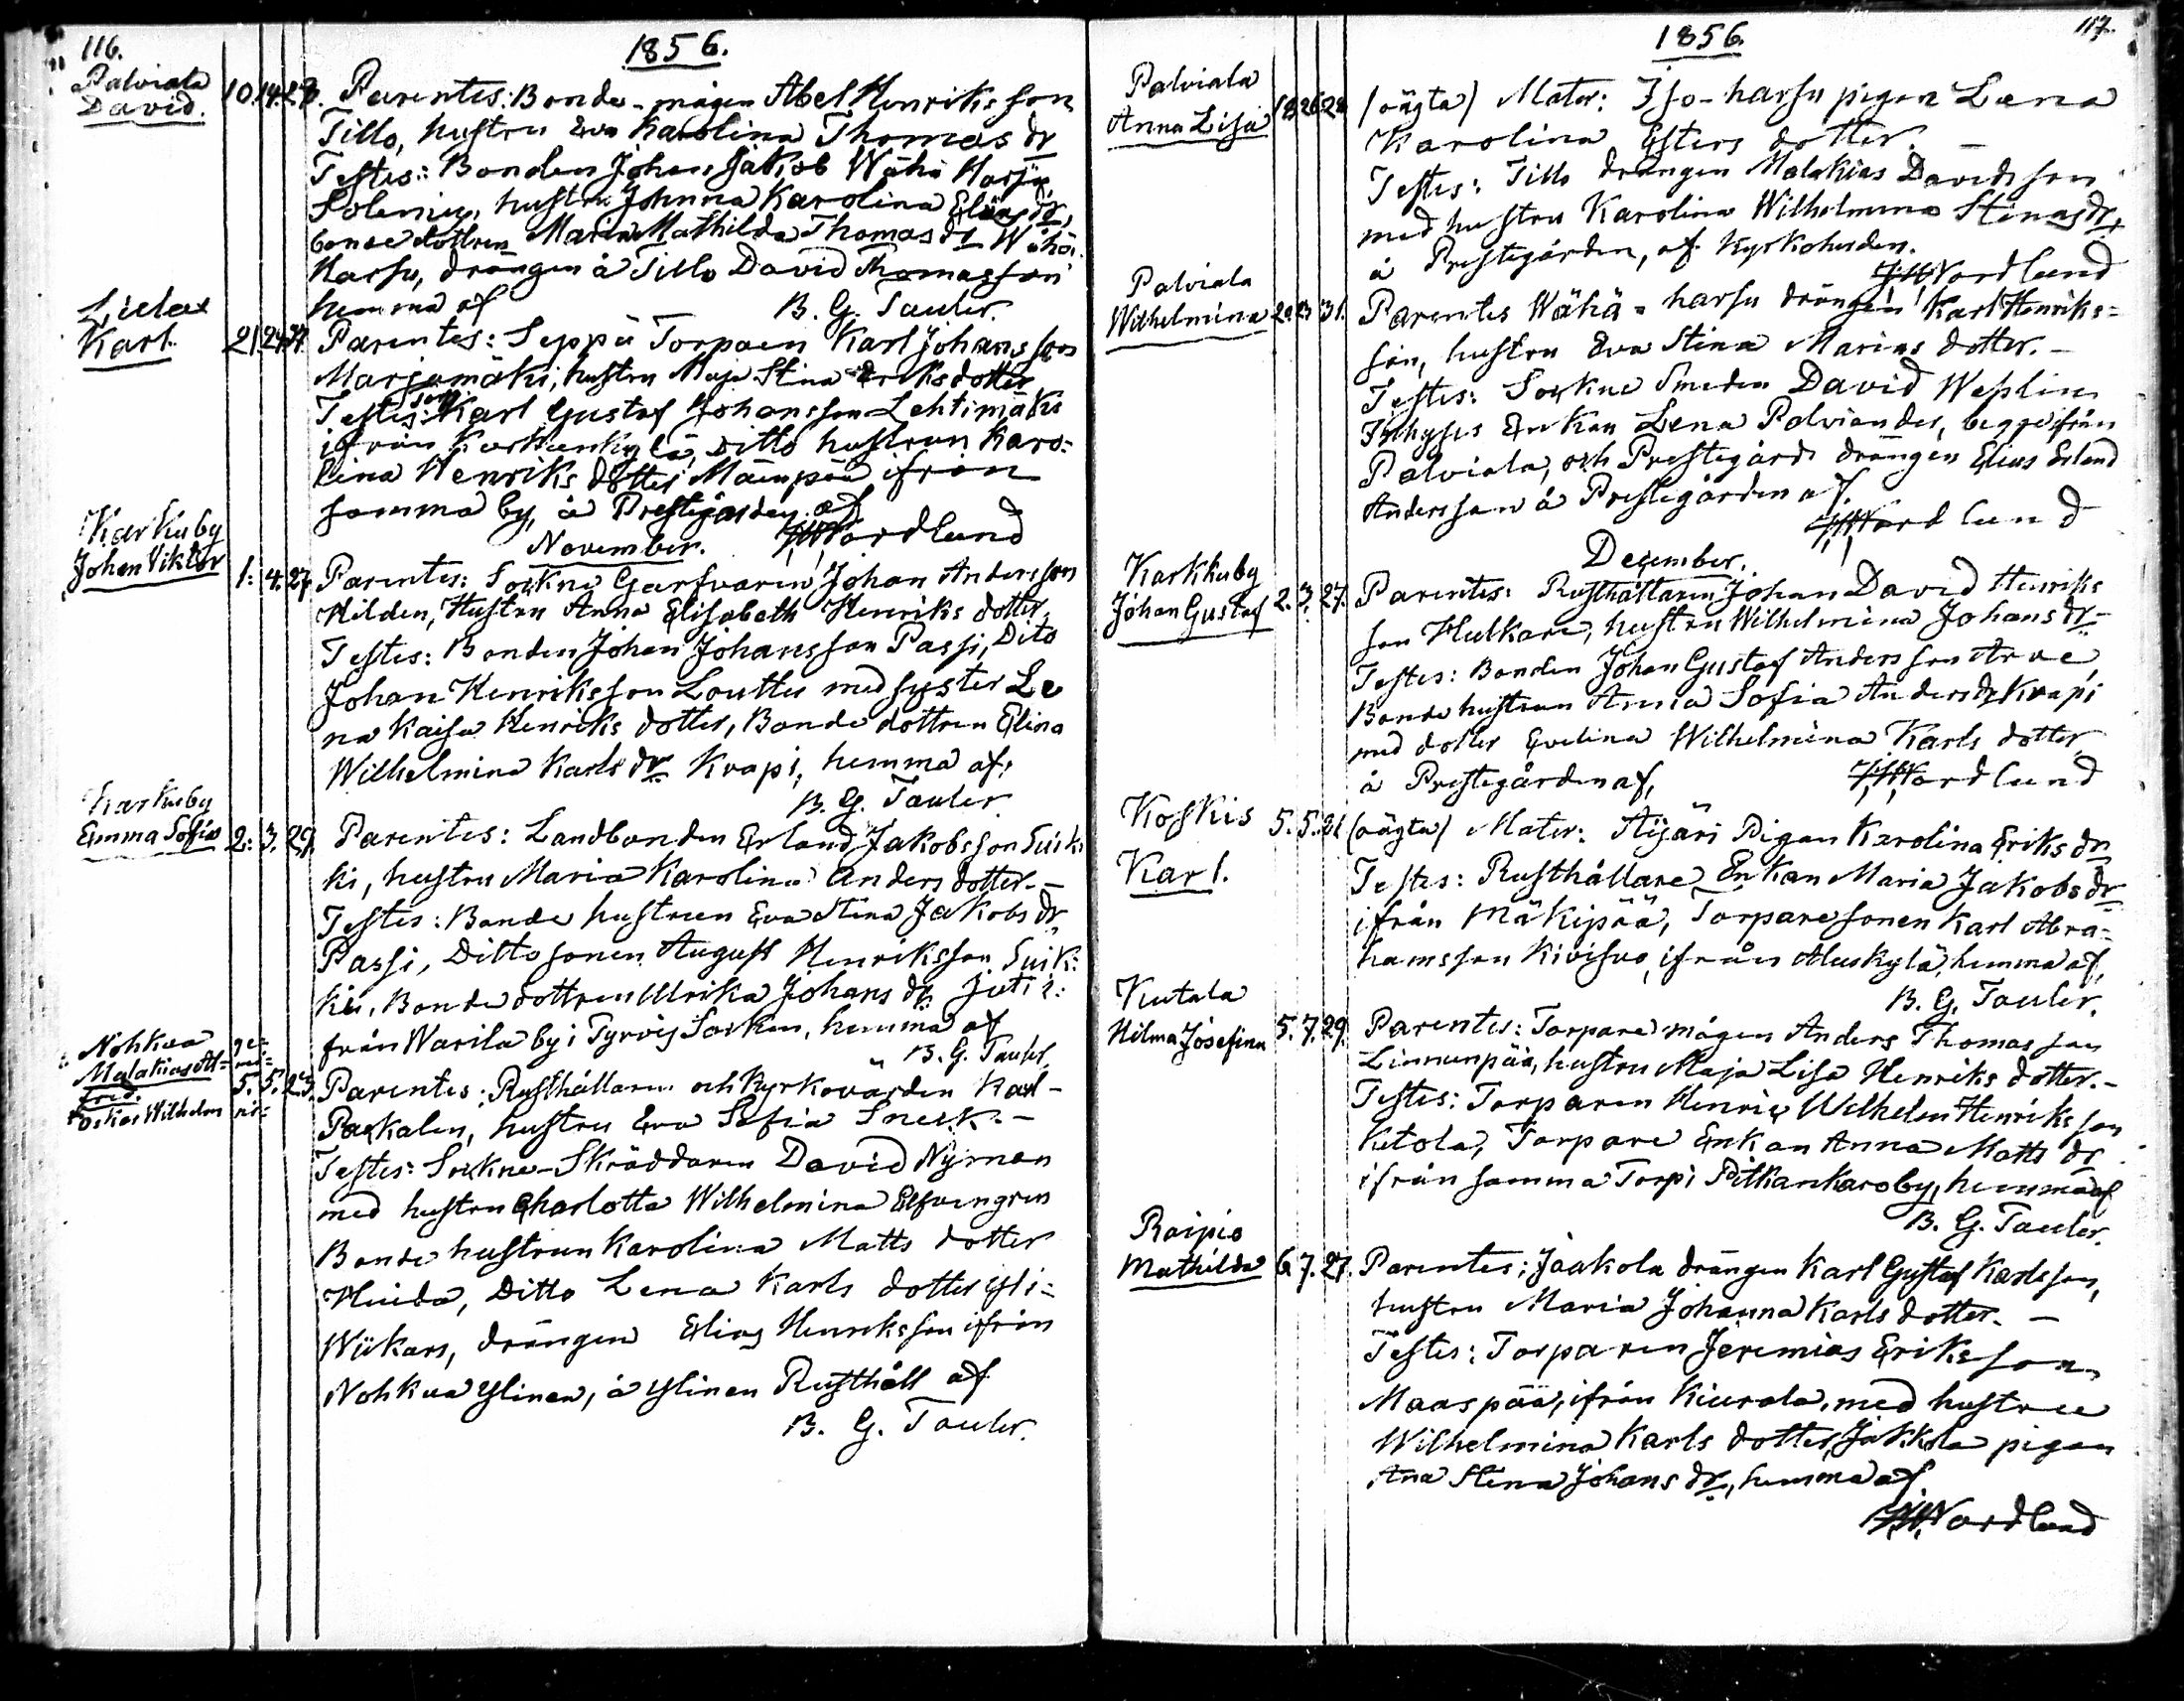 116.
1856.
Palviala
David.
10. 14. 28. Parentes: Bonde-mågen Abel Henriksson
Tillo, hustru Eva Karolina Thomas dr
Testes: Bonden Johan Jakob Wähä Harju
hustru Johnna Karolina Elias dr,
bonde dottren Maria Mathilda Thomas dr Wähä-
Harju, drängen å Tillo David Thomasson
hemma af
B. G. Tauler.
Liuha
Karl.
21. 24. Parentes: Seppä Torparen Karl Johansson
Marjamäki, hustru Maja Stina Eriksdotter
Testes: Karl Gustaf Johansson Lehtimäki
ifrån Karhunkylä, Ditto hustrun Karo-
lina Henriks dotter Mäenpää ifrån
samma by, å Prestgården af
JWNordlund
November.
Karkuby
Johan Viktor
1. 4. 27. Parentes: Sockne Garfvaren Johan Andersson
Hilden, Hustru Anna Elisabeth Henriks dotter,
Testes: Bonden Johan Johansson Passi, Dito
Johan Henriksson Louttu med syster Le
na Kaisa Henriks dotter, Bonde dottren Elina
Wilhelmina Karls dr Krapi, hemma af,
B. G. Tauler
Karkuby
Emma Sofia
2. 3. 29. Parentes: Landbonden Erland Jakobsson Suik
ki, hustru Maria Karolina Anders dotter.-
Testes: Bonde hustrun Eva Stina Jakobs dr
Passi, Ditto sonen August Henriksson Suik:
ki, Bonde dottren Ulrika Johans dr Juti i:
från Warila by i Tyrvis Socken, hemma af
B. G. Tauler
Nohkua
Malakias Alf-
fred.
Oskar Wilhelm
ge-
mi-
ni-
5. 5. 23. Parentes: Rusthållaren och Kyrkovärden Karl
Paskalen, hustru Eva Sofia Sneck.-
Testes: Sockne-Skräddaren David Nyman
med hustru Charlotta Wilhelmina Elfvengren
Bonde hustrun Karolina Matts dotter
Huida, Ditto Lena Karls dotter Yli-
Wiikars, drängen Elias Henriksson ifrån
Nohkua Ylinen, å Ylinen Rusthåll af
B. G. Tauler.
117.
1856.
Palviala
Anna Lisa
18 26 28 (oägta) Mater: Iso-harju pigan Lena
Karolina Esters dotter.-
Testes: Tillo drängen Malakias Davidsson
med hustru Karolina Wilhelmina Stinas dr,
å Prestegården, af Kyrkoherden.
JWNordlund
Palviala
Wilhelmina
20. 23. 31. Parentes Wähä-harju drängen Karl Henriks-
son, hustru Eva Stina Marias dotter.-
Testes: Sockne Smeden David Weslin
Inhyses Enkan Lena Palviander, begge ifrån
Palviala, och Prestegårds drängen Elias Erland
Andersson å Prestegården af.
JWNordlund
December.
Karkkuby
Johan Gustaf
2. 3. 27. Parentes: Rusthållaren Johan David Henriks
son Hulkari, hustru Wilhelmina Johans dr-
Testes: Bonden Johan Gustaf Andersson Arve,
Bonde hustrun Anna Sofia Anders dr Krapi
med dotter Evelina Wilhelmina Karls dotter
å Prestegården af,
JWNordlund
Koskis
Karl.
5. 5. 21 (oägta) Mater: Äijäri Pigan Karolina Eriks dr
Testes: Rusthållare Enkan Maria Jakobs dr
ifrån Mäkipää, Torpare sonen Karl Abra-
hamsson Kivisuo, ifrån Aluskylä, hemma af,
B. G. Tauler.
Kutala
Hilma Josefina
5. 7. 29. Parentes: Torpare mågen Anders Thomasson
Linnunpää, hustru Maja Lisa Henriks dotter.-
Testes: Torparen Henric Wilhelm Henriksson
Kutola, Torpare Enkan Anna Matts dr
ifrån samma Torp i Pitkankaroby, hemma af
B. G. Tauler.
Raipio
Mathilda
6. 7. 27. Parentes: Jaakola drängen Karl Gustaf Karlsson,
hustru Maria Johanna Karls dotter.-
Testes: Torparen Jeremias Eriksson
Maaspää, ifrån Kiurala, med hustru
Wilhelmina Karls dotter, Jakkola pigan
Ana Stina Johans dr, hemma af
JWNordlund